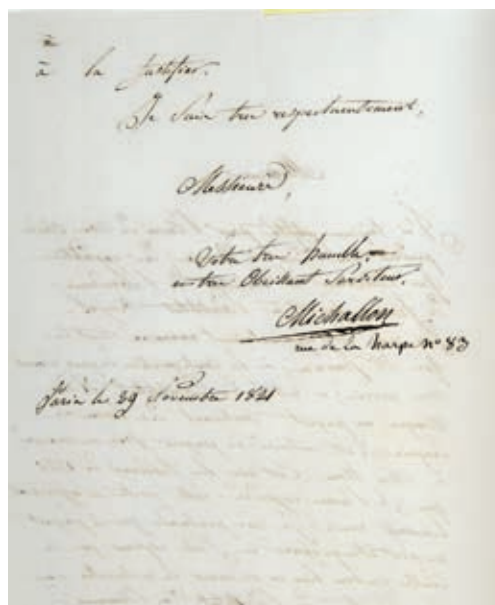 à la justifier.
Je suis très respectueusement,
Messieurs,
Votre très humble
et très Obéissant Serviteur.
Michallon
rue de la Harpe n° 83
Paris le 29 Novembre 1821